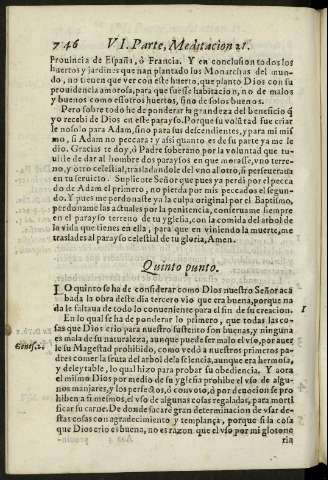 746 VI. Parte, Meditacion vi.
Prouincia de España, ò Francia. Y en conclusion todos los
huertos y jardines que han plantado los Monarchas del mun-
do, no tienen que ver con este huerto, que planto Dios con su
prouidencia amorosa, para que fuesse habitacion, no de malos
y buenos como essotros huertos, sino de solos buenos.
Pero sobre todo he de ponderar la grandeza del beneficio q̃
yo recebi de Dios en este parayso. Porque su volũtad fue criar
le no solo para Adam, sino para sus descendientes, y para mi mis
mo, si Adam no peccara: y assi quanto es de su parte ya me le
dio. Gracias te doy, ò Padre soberano por la voluntad que tu-
uiste de dar al hombre dos paraysos en que morasse, vno terre-
no, y otro celestial, trasladandole del vno al otro, si perseuerasta
en tu seruicio. Suplicote Señor que pues ya perdi por el pecca
do de Adam el primero, no pierda por mis peccados el segun-
do. Y pues me perdonaste ya la culpa original por el Baptismo,
perdoname las actuales por la penitencia, conseruame siempre
en el parayso terreno de tu yglesia, con la comida del arbol de
la vida que tienes en ella, para que en viniendo la muerte, me
traslades al parayso celestial de tu gloria, Amen.
Quinto punto.
LO quinto se ha de considerar como Dios nuestro Señor aca
bada la obra deste dia tercero vio que era buena, porque na
da le faltaua de todo lo conueniente para el fin de su creacion. 1
En lo qual se ha de ponderar lo primero, que todas las co-
sas que Dios crio para nuestro sustento son buenas, y ninguna
es mala de su naturaleza, aunque puede ser malo el vso, por auer
Genes. 2. le su Magestad prohibido, como vedò a nuestros primeros pa-
dres comer la fruta del arbol de la sciencia, aunque era hermosa,
y deleytable, lo qual hizo para probar su obediencia. Y aora
el mismo Dios por medio de su yglesia prohibe el vso de algu-
nos manjares, y los perfectos, ò con voto, ò por deuocion se pro
hiben a si mesmos, el vso de algunas cosas regaladas, para morti
ficar su carne. De donde sacarè gran determinacion de vsar de-
stas cosas con agradecimiento y templança, porque si la cosa
que Dios crio es buena, no es razon que el vso por mi glotone
ria